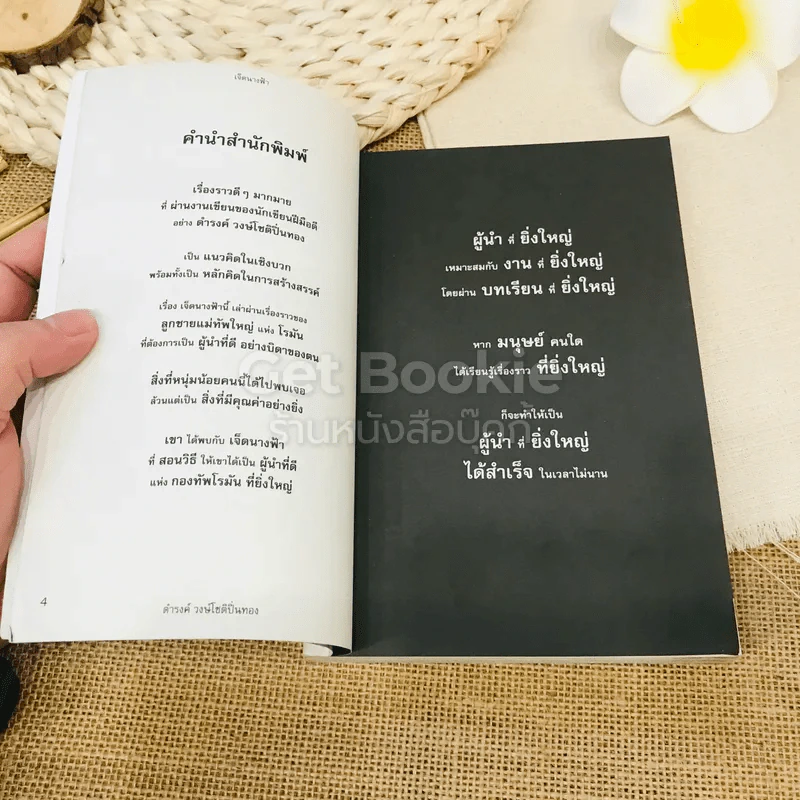 เจ็ดนางฟ้า
คำนำสำนักพิมพ์
เรื่องราวดี ๆ มากมาย
ที่ ผ่านงานเขียนของนักเขียนฝีมือดี
อย่าง ดำรงค์ วงษ์โชติปิ่นทอง
เป็น แนวคิดในเชิงบวก
พร้อมทั้งเป็น หลักคิดในการสร้างสรรค์
เรื่อง เจ็ดนางฟ้านี้ เล่าผ่านเรื่องราวของ
ลูกชายแม่ทัพใหญ่ แห่ง โรมัน
ที่ต้องการเป็น ผู้นำที่ดี อย่างบิดาของตน
สิ่งที่หนุ่มน้อยคนนี้ได้ไปพบเจอ
ล้วนแต่เป็น สิ่งที่มีคุณค่าอย่างยิ่ง
เขา ได้พบกับ เจ็ดนางฟ้า
ที่ สอนวิธี ให้เขาได้เป็น ผู้นำที่ดี
แห่ง กองทัพโรมัน ที่ยิ่งใหญ่
4
ดำรงค์ วงษ์โชติปิ่นทอง
ผู้นำ ที่ ยิ่งใหญ่
เหมาะสมกับ งาน ที่ ยิ่งใหญ่
โดยผ่าน บทเรียน ที่ ยิ่งใหญ่
หาก มนุษย์ คนใด
ได้เรียนรู้เรื่องราว ที่ยิ่งใหญ่
ก็จะทำให้เป็น
ผู้นำ ที่ ยิ่งใหญ่
ได้สำเร็จ ในเวลาไม่นาน
Get Bookie
ร้านหนังสือบุ๊คกี้